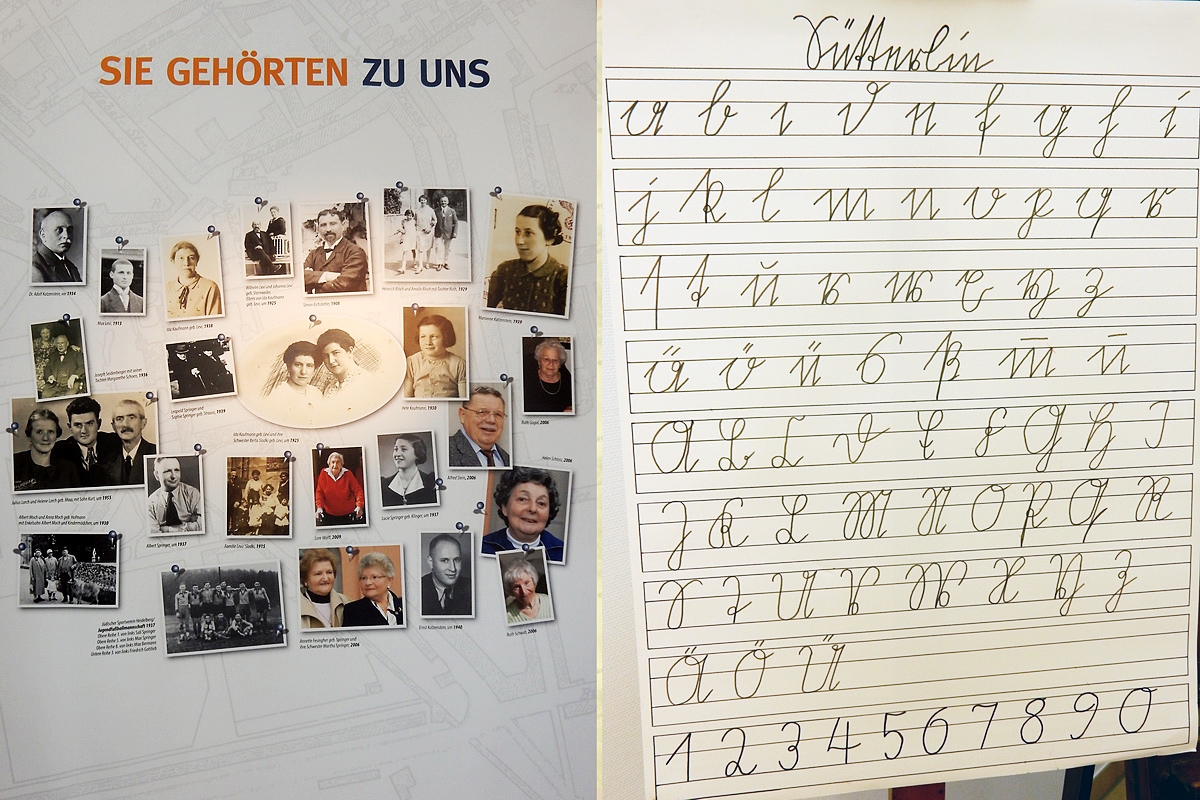 SIE GEHÖRTEN ZU UNS
Dr. Adolf Katzenstein, um 1934
Max Levi, 1915
Ida Kaufmann geb. Levi, 1938
Wilhelm Levi und Johanna Levi
geb. Sternweiler,
Eltern von Ida Kaufmann
geb. Levi, um 1925
Simon Eichstetter, 1908
Heinrich Kirsch und Amalie Kirsch mit Tochter Ruth, 1929
Marianne Katzenstein, 1939
Joseph Seidenberger mit seiner
Tochter Margarethe Schoen, 1938
Leopold Springer und
Sophie Springer geb. Strauss, 1939
Ida Kaufmann geb. Levi und ihre
Schwester Berta Slodki geb. Levi, um 1925
Kaufmann, 1930
Ruth Gogol, 2006
Julius Lorch und Helene Lorch geb. Maas, mit Sohn Kurt, um 1955
Albert Mach und Anna Mach geb. Hofmann
mit Enkelsohn Albert Mach und Kindermädchen, um 1930
Albert Springer, um 1937
Familie Levi/ Slodki, 1915
Lore Wolff, 2009
Lucie Springer geb. Klinger, um 1937
Alfred Stein, 2006
Helen Schloss, 2006
Jüdischer Sportverein Heidelberg/
Jugendfußballmannschaft 1937
Obere Reihe 1. von links Sali Springer
Obere Reihe 5. von links Max Springer
Obere Reihe 8. von links Max Bermann
Untere Reihe 3. von links Friedrich Gottlieb
Annette Fesingher geb. Springer und
ihre Schwester Martha Springer, 2006
Ernst Katzenstein, um 1940
Ruth Schwab, 2006
Sütterlin
a b c d e f g h i
j k l m n o p q r
ſ t u v w x y z
ä ö ü s ß m̄ n̄
A B C D E F G H I
J K L M N O P Q R
S T U V W X Y Z
Ä Ö Ü
1 2 3 4 5 6 7 8 9 0